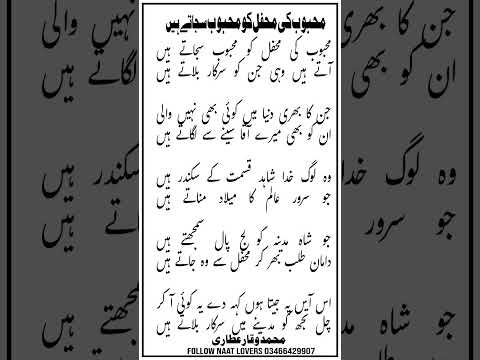 محبوب کی محفل کو محبوب سجاتے ہیں
محبوب کی محفل کو محبوب سجاتے ہیں
آتے ہیں وہی جن کو سرکار بلاتے ہیں
جن کا بھری دنیا میں کوئی بھی نہیں والی
ان کو بھی میرے آقا سینے سے لگاتے ہیں
وہ لوگ خدا شاہد قسمت کے سکندر ہیں
جو سرور عالم کا میلاد مناتے ہیں
جو شاہ مدینہ کو لج پال سمجھتے ہیں
دامان طلب بھر کر محفل سے وہ جاتے ہیں
اس آس پہ جیتا ہوں کہہ دے یہ کوئی آ کر
چل تجھ کو مدینے میں سرکار بلاتے ہیں
محمد وقار عطاری
FOLLOW NAAT LOVERS 03466429907